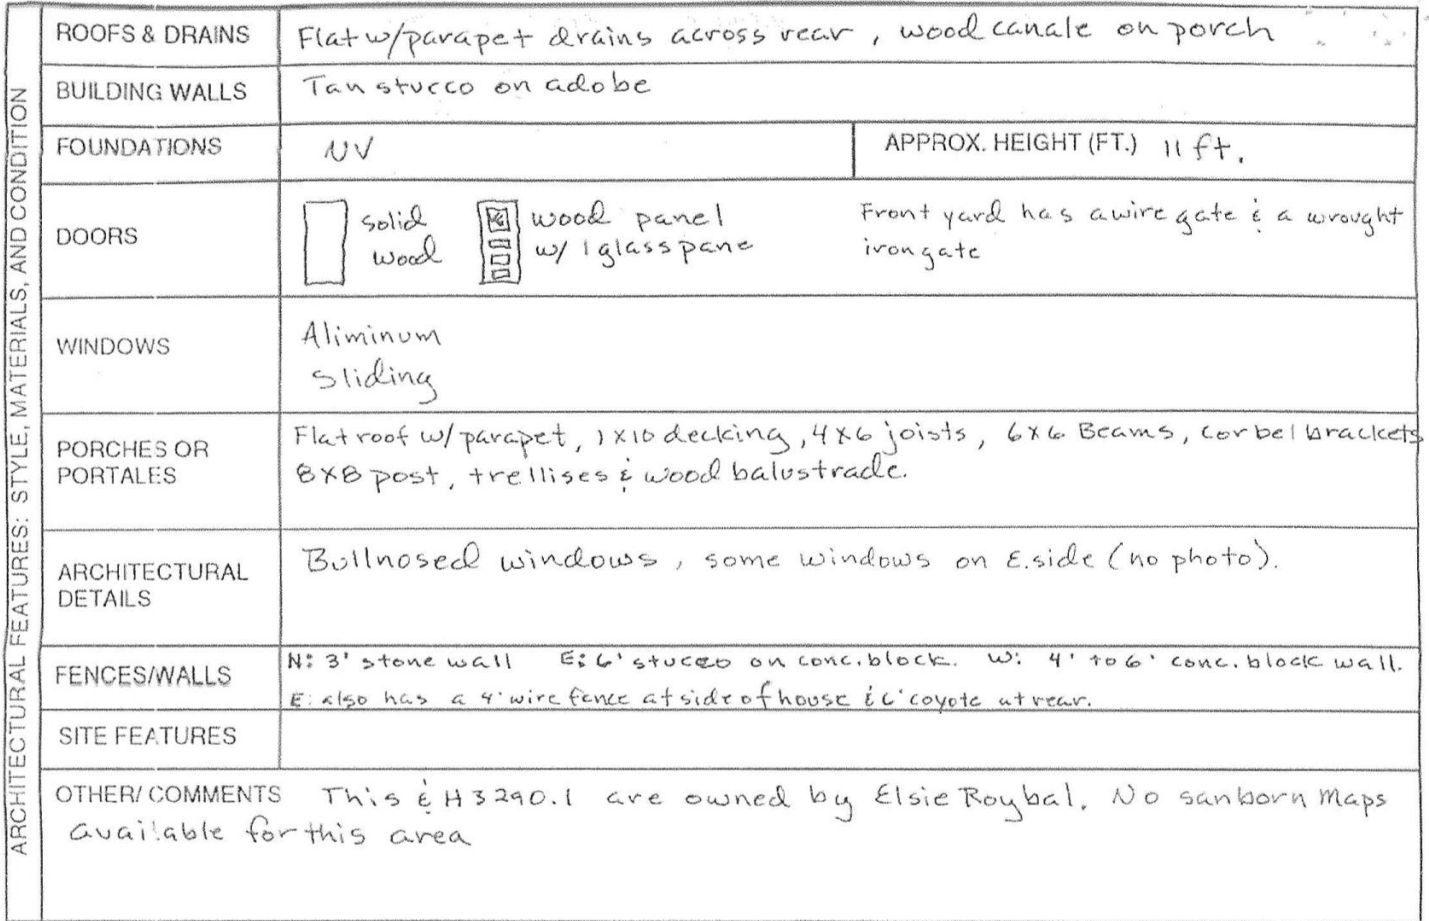 ARCHITECTURAL FEATURES: STYLE, MATERIALS, AND CONDITION
ROOFS & DRAINS Flat w/parapet drains across rear, wood canale on porch
BUILDING WALLS Tan stucco on adobe
FOUNDATIONS NV APPROX. HEIGHT (FT.) 11 ft.
DOORS
solid
wood
wood panel
w/ 1 glass pane
Front yard has a wire gate & a wrought
iron gate
WINDOWS
Aliminum
Sliding
PORCHES OR
PORTALES
Flat roof w/parapet, 1x10 decking, 4x6 joists, 6x6 Beams, corbel brackets
8x8 post, trellises & wood balustrade.
ARCHITECTURAL
DETAILS
Bullnosed windows, some windows on E. side (no photo).
FENCES/WALLS
N: 3' stone wall E: 6' stucco on conc. block. W: 4' to 6' conc. block wall.
E: also has a 4' wire fence at side of house & 6' coyote at rear.
SITE FEATURES
OTHER/ COMMENTS This & H3290.1 are owned by Elsie Roybal. No sanborn Maps
available for this area